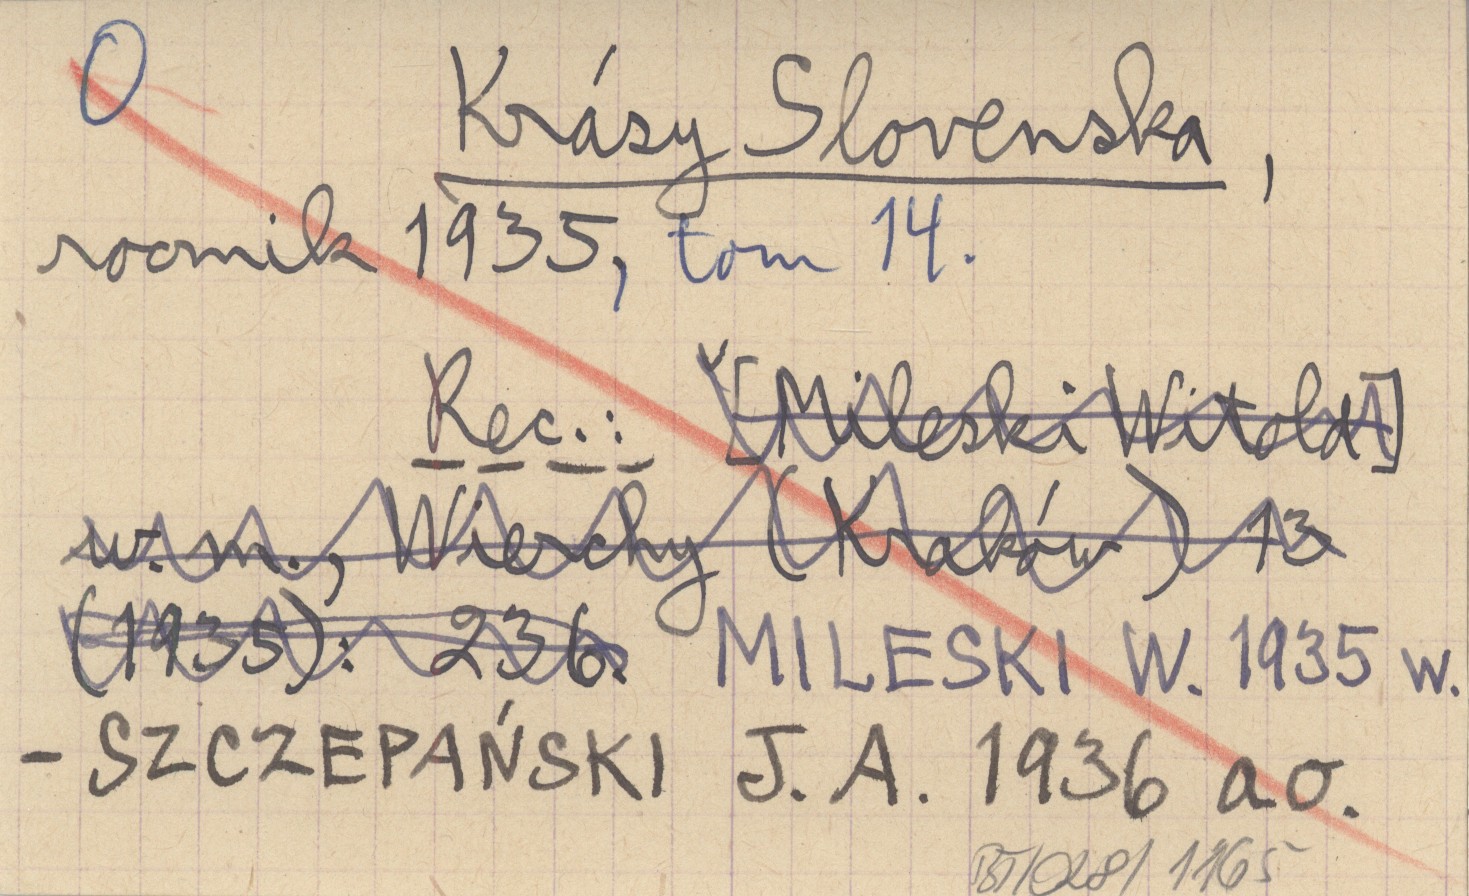 O Krásy Slovenska,
rocznik 1935, tom 14.
Rec.: [Mileski Witold]
w. m., Wierchy (Kraków) 13
(1935): 236. MILESKI W. 1935 w.
- SZCZEPAŃSKI J. A. 1936 ao.
BT/028/1165